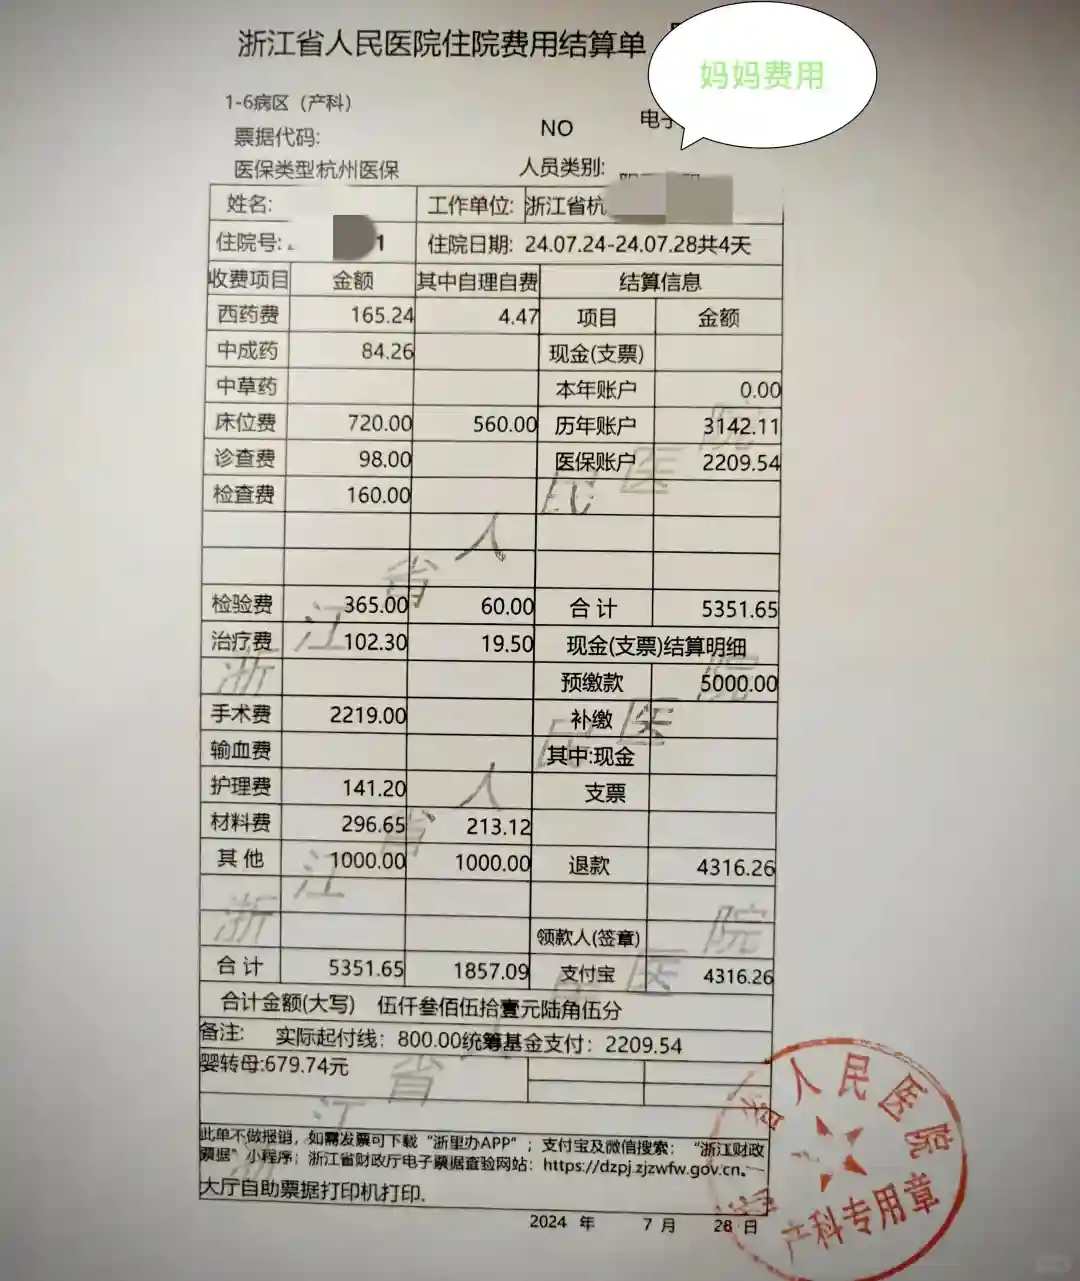 浙江省人民医院住院费用结算单
妈妈费用
1-6病区（产科）
票据代码: NO 电子
医保类型杭州医保 人员类别:
姓名: 工作单位: 浙江省杭
住院号: 1 住院日期: 24.07.24-24.07.28共4天
收费项目 金额 其中自理自费 结算信息
西药费 165.24 4.47 项目 金额
中成药 84.26 现金(支票)
中草药 本年账户 0.00
床位费 720.00 560.00 历年账户 3142.11
诊查费 98.00 医保账户 2209.54
检查费 160.00
检验费 365.00 60.00 合计 5351.65
治疗费 102.30 19.50 现金(支票)结算明细
预缴款 5000.00
手术费 2219.00 补缴
输血费 其中:现金
护理费 141.20 支票
材料费 296.65 213.12
其他 1000.00 1000.00 退款 4316.26
领款人(签章)
合计 5351.65 1857.09 支付宝 4316.26
合计金额(大写) 伍仟叁佰伍拾壹元陆角伍分
备注: 实际起付线：800.00统筹基金支付：2209.54
婴转母:679.74元
此单不做报销，如需发票可下载“浙里办APP”；支付宝及微信搜索：“浙江财政
票据”小程序；浙江省财政厅电子票据查验网站：https://dzpj.zjzwfw.gov.cn。
大厅自助票据打印机打印.
2024 年 7 月 28 日
浙江省人民医院
浙江省人民医院
浙江省人民医院
人民医院
产科专用章